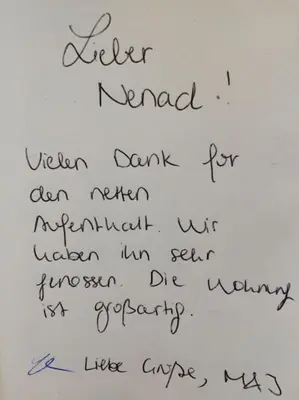 Lieber
Nenad!
Vielen Dank für
den netten
Aufenthalt. Wir
haben ihn sehr
genossen. Die Wohnung
ist großartig.
Liebe Grüße, M&J